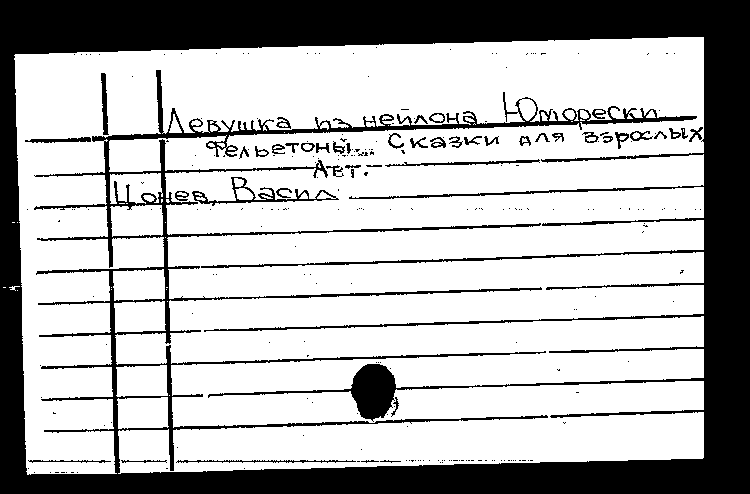 Девушка из нейлона. Юморески
Фельетоны. Сказки для взрослых
Авт.
Цонев, Васил